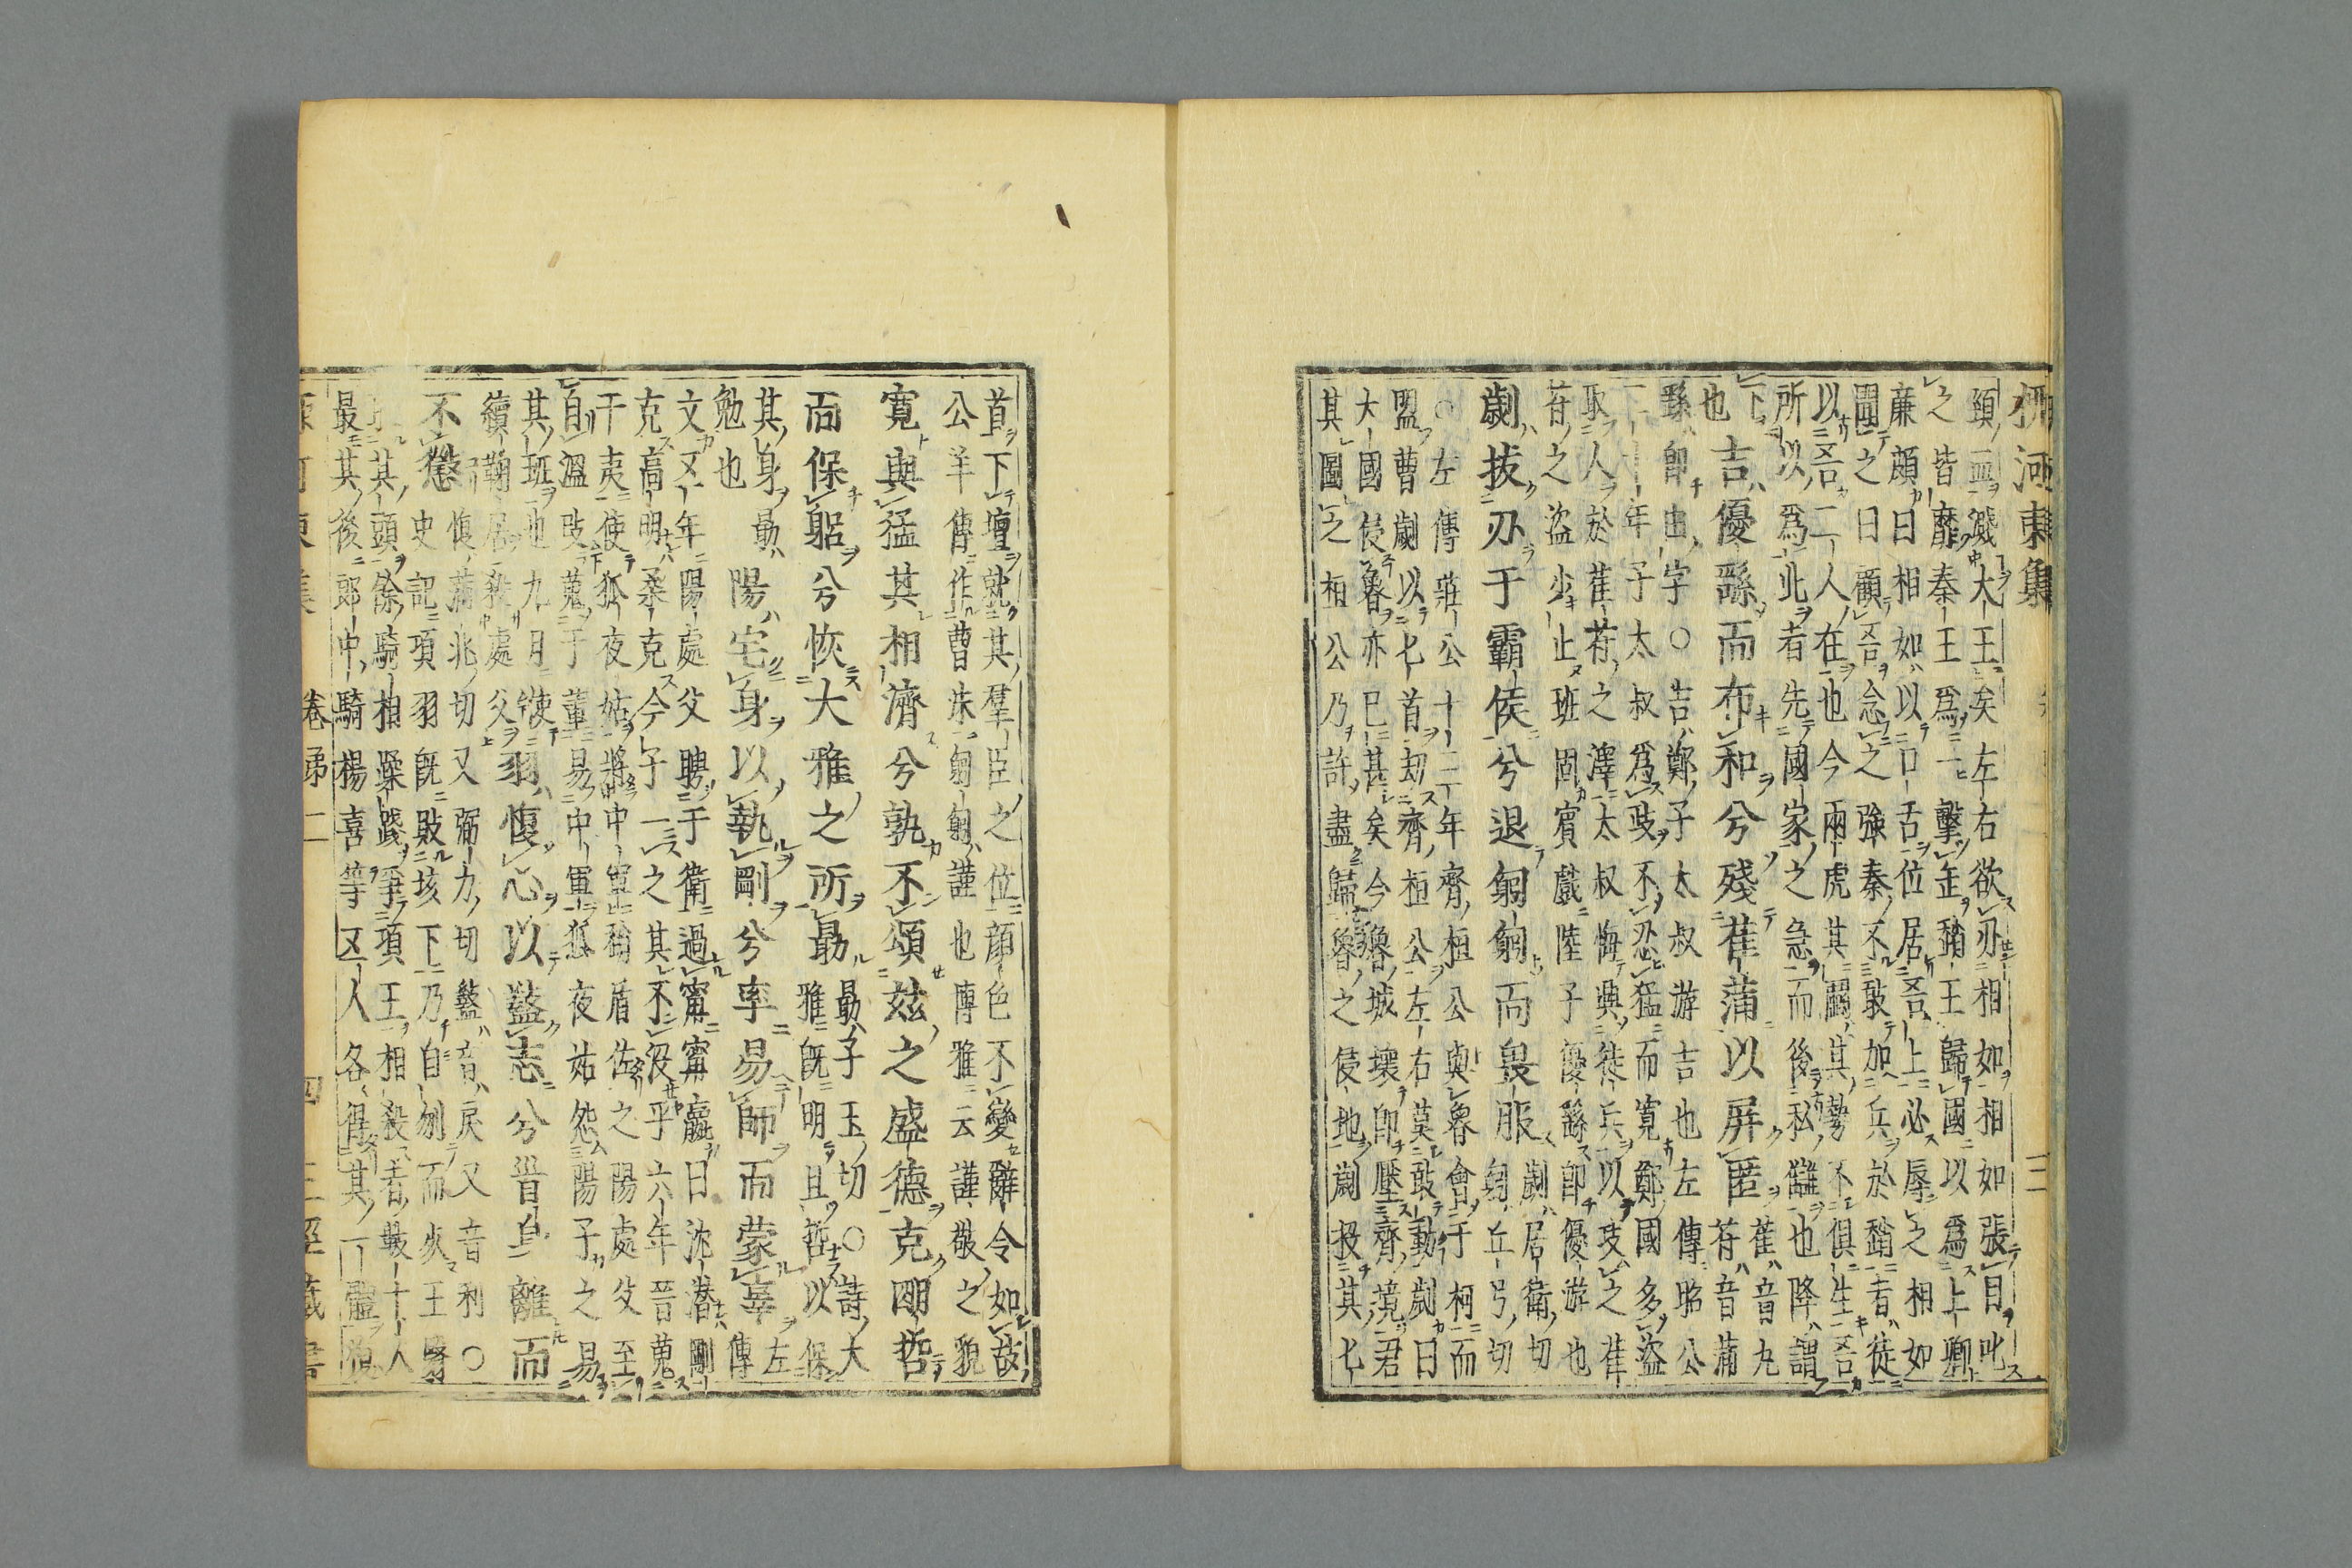 柳河東集
頸血濺大王矣左右欲刃相如相如張目叱
之皆靡秦王爲一擊缶趙王歸國以爲上卿
廉頗曰相如以口舌位居吾上必辱之相如
聞之曰顧吾念之強秦不敢加兵於趙者徒
以吾二人在也今兩虎其鬭其勢不俱生吾
所以爲此者先國家之急而後私讎也降謂
下也
吉優繇而布和兮殘萑蒲以屏匿
萑音丸
苻音蒲
繇卽由字○吉鄭子太叔游吉也左傳昭公
二十年子太叔爲政不忍猛而寬鄭國多盜
取人於萑苻之澤太叔悔興徒兵以攻之萑
苻之盜少止班固賓戲陸子優繇卽優游也
劌拔刃于霸侯兮退匑匑而畏服
劌居衛切
匑丘弓切
○左傳莊公十二年齊桓公與魯會于柯而
盟曹劌以匕首劫齊桓公左右莫敢動劌曰
大國侵魯亦已甚矣今魯城壞卽壓齊境君
其圖之桓公乃許盡歸魯之侵地劌投其匕
三
首下壇就其羣臣之位顔色不變辭令如故
公羊傳作曹沬匑匑謹也博雅云謹敬之貌
寬與猛其相濟兮孰不頌玆之盛德克明哲
而保躬兮恢大雅之所勗
勗子玉切○詩大
雅旣明且哲以保
其身勗
勉也
陽宅身以執剛兮率易師而蒙辜
左
傳
文又年陽處父聘于衛過甯甯嬴曰沈潛剛
克高明柔克今子一之其不沒乎六年晉蒐
于夷使狐夜姑將中軍趙盾佐之陽處父至
自溫改蒐于董易中軍狐夜姑怨陽子之易
其班也九月使
續鞫居殺處父
羽愎心以盭志兮首身離而
不懲
愎蒲北切又弼力切盭音戾又音利○
史記項羽旣敗垓下乃自刎而死王翳
其頭餘騎相蹂踐爭項王相殺者數十人
最其後郎中騎楊喜等又人各得其一體
卷第二
四
三徑藏書